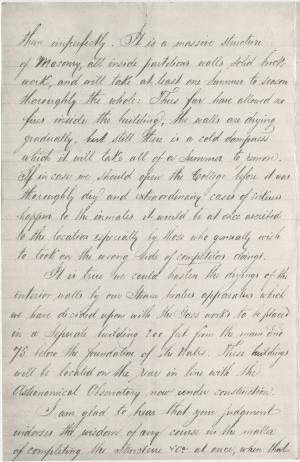 them imperfectly. It is a massive structure
of Masonry, all inside partitions walls, solid brick
work, and will take at least one Summer to season
thoroughly the whole. Thus far have allowed no
fires inside the building, the walls are drying
gradually, but still there is a cold dampness
which it will take all of a Summer to remove.
If in case we should open the College before it was
thoroughly dry and extraordinary cases of sickness
happen to the inmates it would be at once ascribed
to the location especially by those who generally wish
to look on the wrong side of competitors doings.
It is true we could hasten the dryings of the
interior walls by our Steam heaters apparatus which
we have decided upon with the Gas works to be placed
in a Seperate building 200 feet from the main and
75 below the foundation of the Walls. These buildings
will be located on the rear in line with the
Astronomical Observatory now under construction.
I am glad to hear that your judgment
endorses the wisdom of my course in the matter
of completing the Structure &c at once, when that